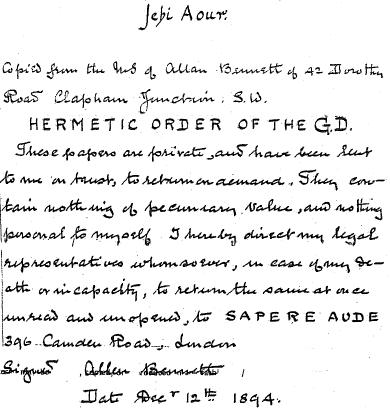 Iehi Aour.
Copied from the MS of Allan Bennett of 42 Dorothy
Road Clapham Junction. S.W.
HERMETIC ORDER OF THE G.D.
These papers are private, and have been lent
to me on trust, to return on demand. They con-
tain nothing of pecuniary value, and nothing
personal to myself. I hereby direct my legal
representatives whomsoever, in case of my de-
ath or incapacity, to return the same at once
unread and unopened, to SAPERE AUDE
396 Camden Road, London
Signed Allan Bennett
Dat Decr 12th 1894.